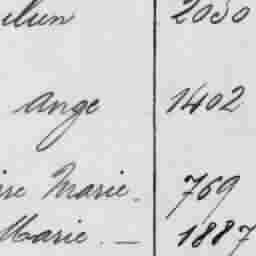 2030
Ange 1402
Marie. 769
Marie. — 1887